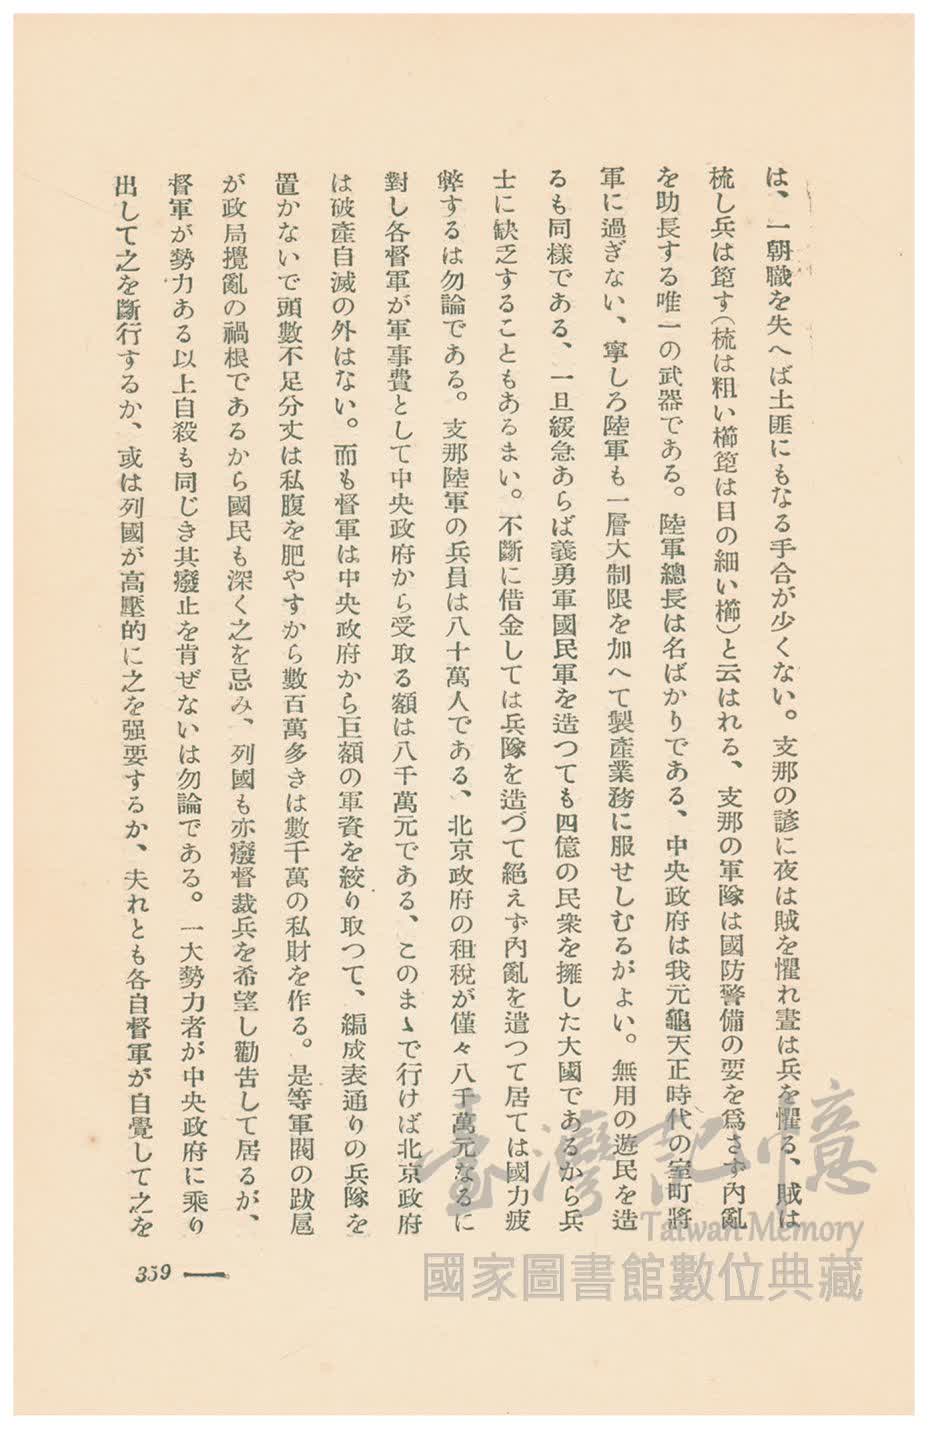 は、一朝職を失へば土匪にもなる手合が少くない。支那の諺に夜は賊を懼れ晝は兵を懼る、賊は
梳し兵は篦す(梳は粗い櫛篦は目の細い櫛)と云はれる、支那の軍隊は國防警備の要を爲さず內亂
を助長する唯一の武器である。陸軍總長は名ばかりである、中央政府は我元龜天正時代の室町將
軍に過ぎない、寧しろ陸軍も一層大制限を加へて製產業務に服せしむるがよい。無用の遊民を造
るも同樣である、一旦緩急あらば義勇軍國民軍を造つても四億の民衆を擁した大國であるから兵
士に缺乏することもあるまい。不斷に借金しては兵隊を造づて絕えず內亂を遣つて居ては國力疲
弊するは勿論である。支那陸軍の兵員は八十萬人である、北京政府の租稅が僅々八千萬元なるに
對し各督軍が軍事費として中央政府から受取る額は八千萬元である、このまゝで行けば北京政府
は破產自滅の外はない。而も督軍は中央政府から巨額の軍資を絞り取つて、編成表通りの兵隊を
置かないで頭數不足分丈は私腹を肥やすから數百萬多きは數千萬の私財を作る。是等軍閥の跋扈
が政局攪亂の禍根であるから國民も深く之を忌み、列國も亦癈督裁兵を希望し勸告して居るが、
督軍が勢力ある以上自殺も同じき其癈止を肯ぜないは勿論である。一大勢力者が中央政府に乘り
出して之を斷行するか、或は列國が高壓的に之を强要するか、夫れとも各自督軍が自覺して之を
359
臺灣記憶
Taiwan Memory
國家圖書館數位典藏